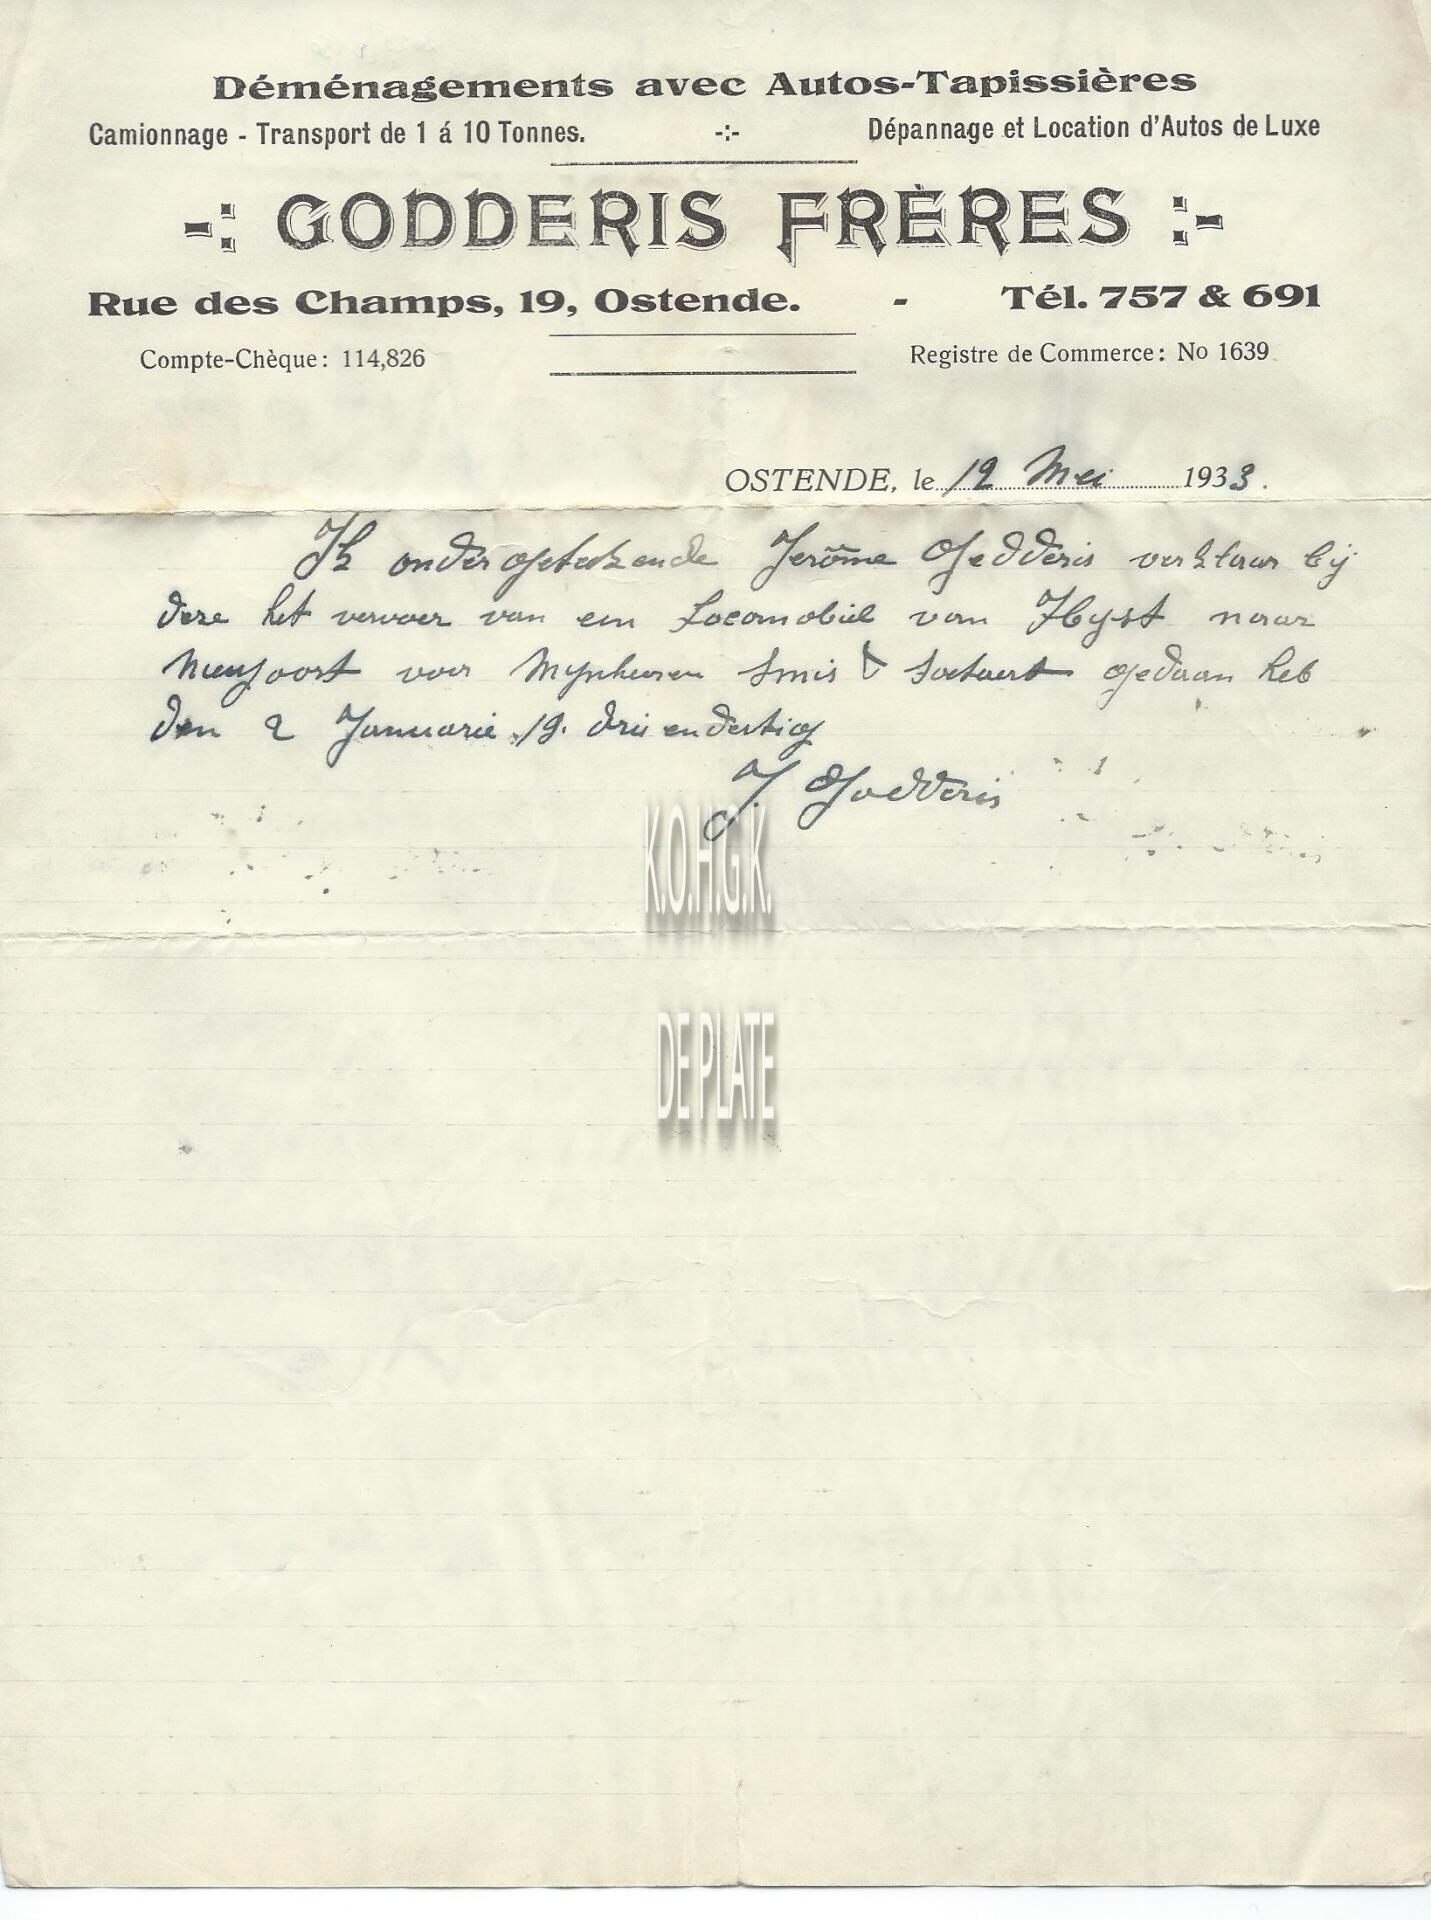 Déménagements avec Autos-Tapissières
Camionnage - Transport de 1 á 10 Tonnes. -:- Dépannage et Location d'Autos de Luxe
-: GODDERIS FRÈRES :-
Rue des Champs, 19, Ostende. - Tél. 757 & 691
Compte-Chèque: 114,826 Registre de Commerce: No 1639
OSTENDE, le 12 Mei 1933.
Ik ondergetekende Jerôme Godderis verklaar bij
deze het vervoer van een Locomobiel van Heyst naar
Nieupoort voor Mynheeren Smis & Soetaert gedaan heb
den 2 Januarie 19. drieendertig
J. Godderis
K.O.H.G.K.
DE PLATE